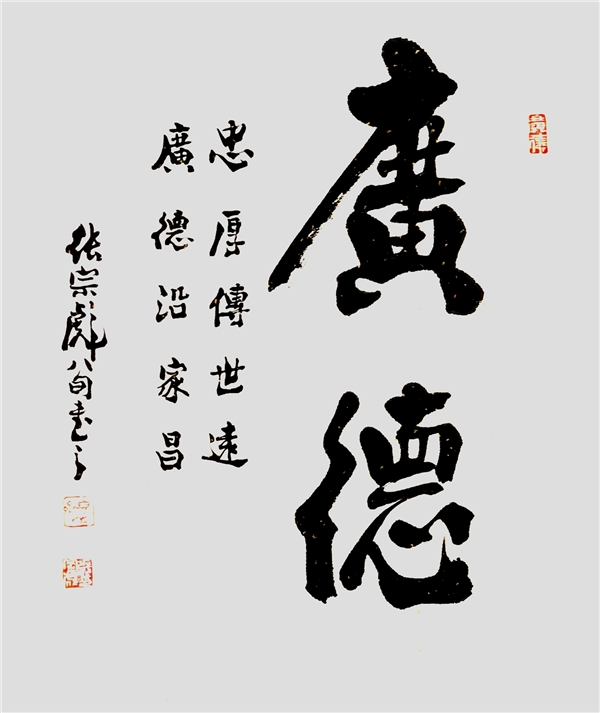 廣德
忠厚傳世遠
廣德沿家昌
張宗彪八旬書之